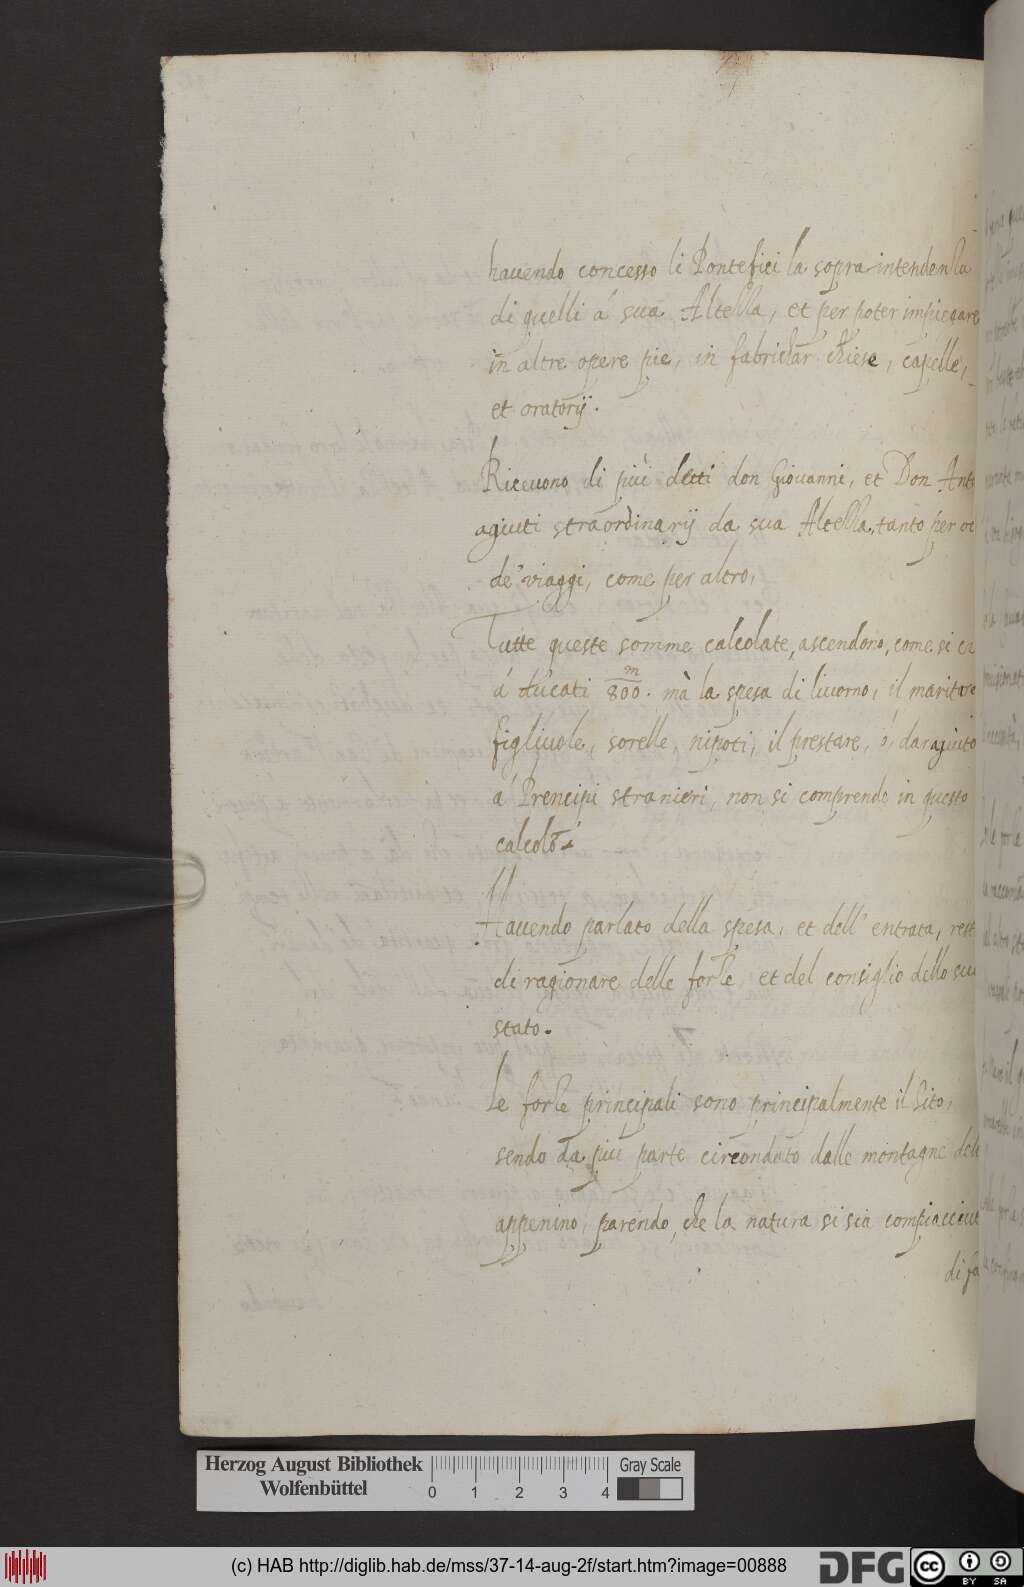 havendo concesso li Pontefici la sopra intendenza
di quelli á sua Altezza, et per poter impiegare
in altre opere pie, in fabrichar chiese, capelle,
et oratorij.
Ricevono di più detti don Giovanni, et Don Anto
agiuti straordinarij da sua Altezza, tanto per oc
de' viaggi, come per altro,
Tutte queste somme calcolate, ascendono, come si
á ducati 800. mà la spesa di livorno, il maritare
m
figlivole, sorelle, nipoti, il prestare, ó, dar agiuto
a Prencipi stranieri, non si comprende in questo
calcolo.
Havendo parlato della spesa, et dell' entrata, rest
di ragionare delle forze, et del consiglio dello suo
stato.
Le forze principali sono principalmente il sito,
sendo da più parte circondato dalle montagne dell
appenino, parendo, che la natura si sia compiacciut
di fa
Herzog August Bibliothek
Wolfenbüttel
0 1 2 3 4
Gray Scale
(c) HAB http://diglib.hab.de/mss/37-14-aug-2f/start.htm?image=00888
DFG
cc BY SA